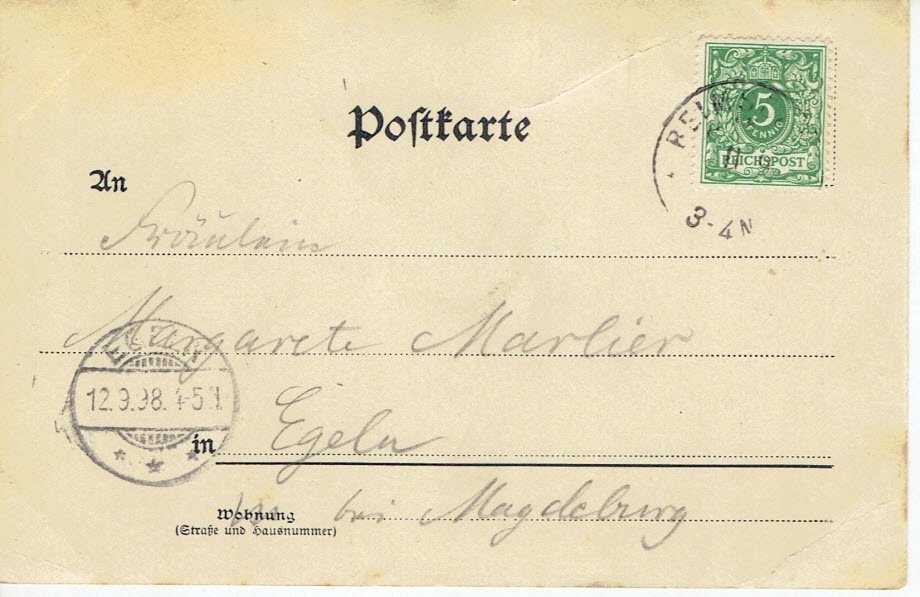 Postkarte
5
PFENNIG
REICHSPOST
11
3-4N
An
Fräulein
Margarete Marlier
12.9.98. 4-5N.
in Egeln
bei Magdeburg
Wohnung
(Straße und Hausnummer)